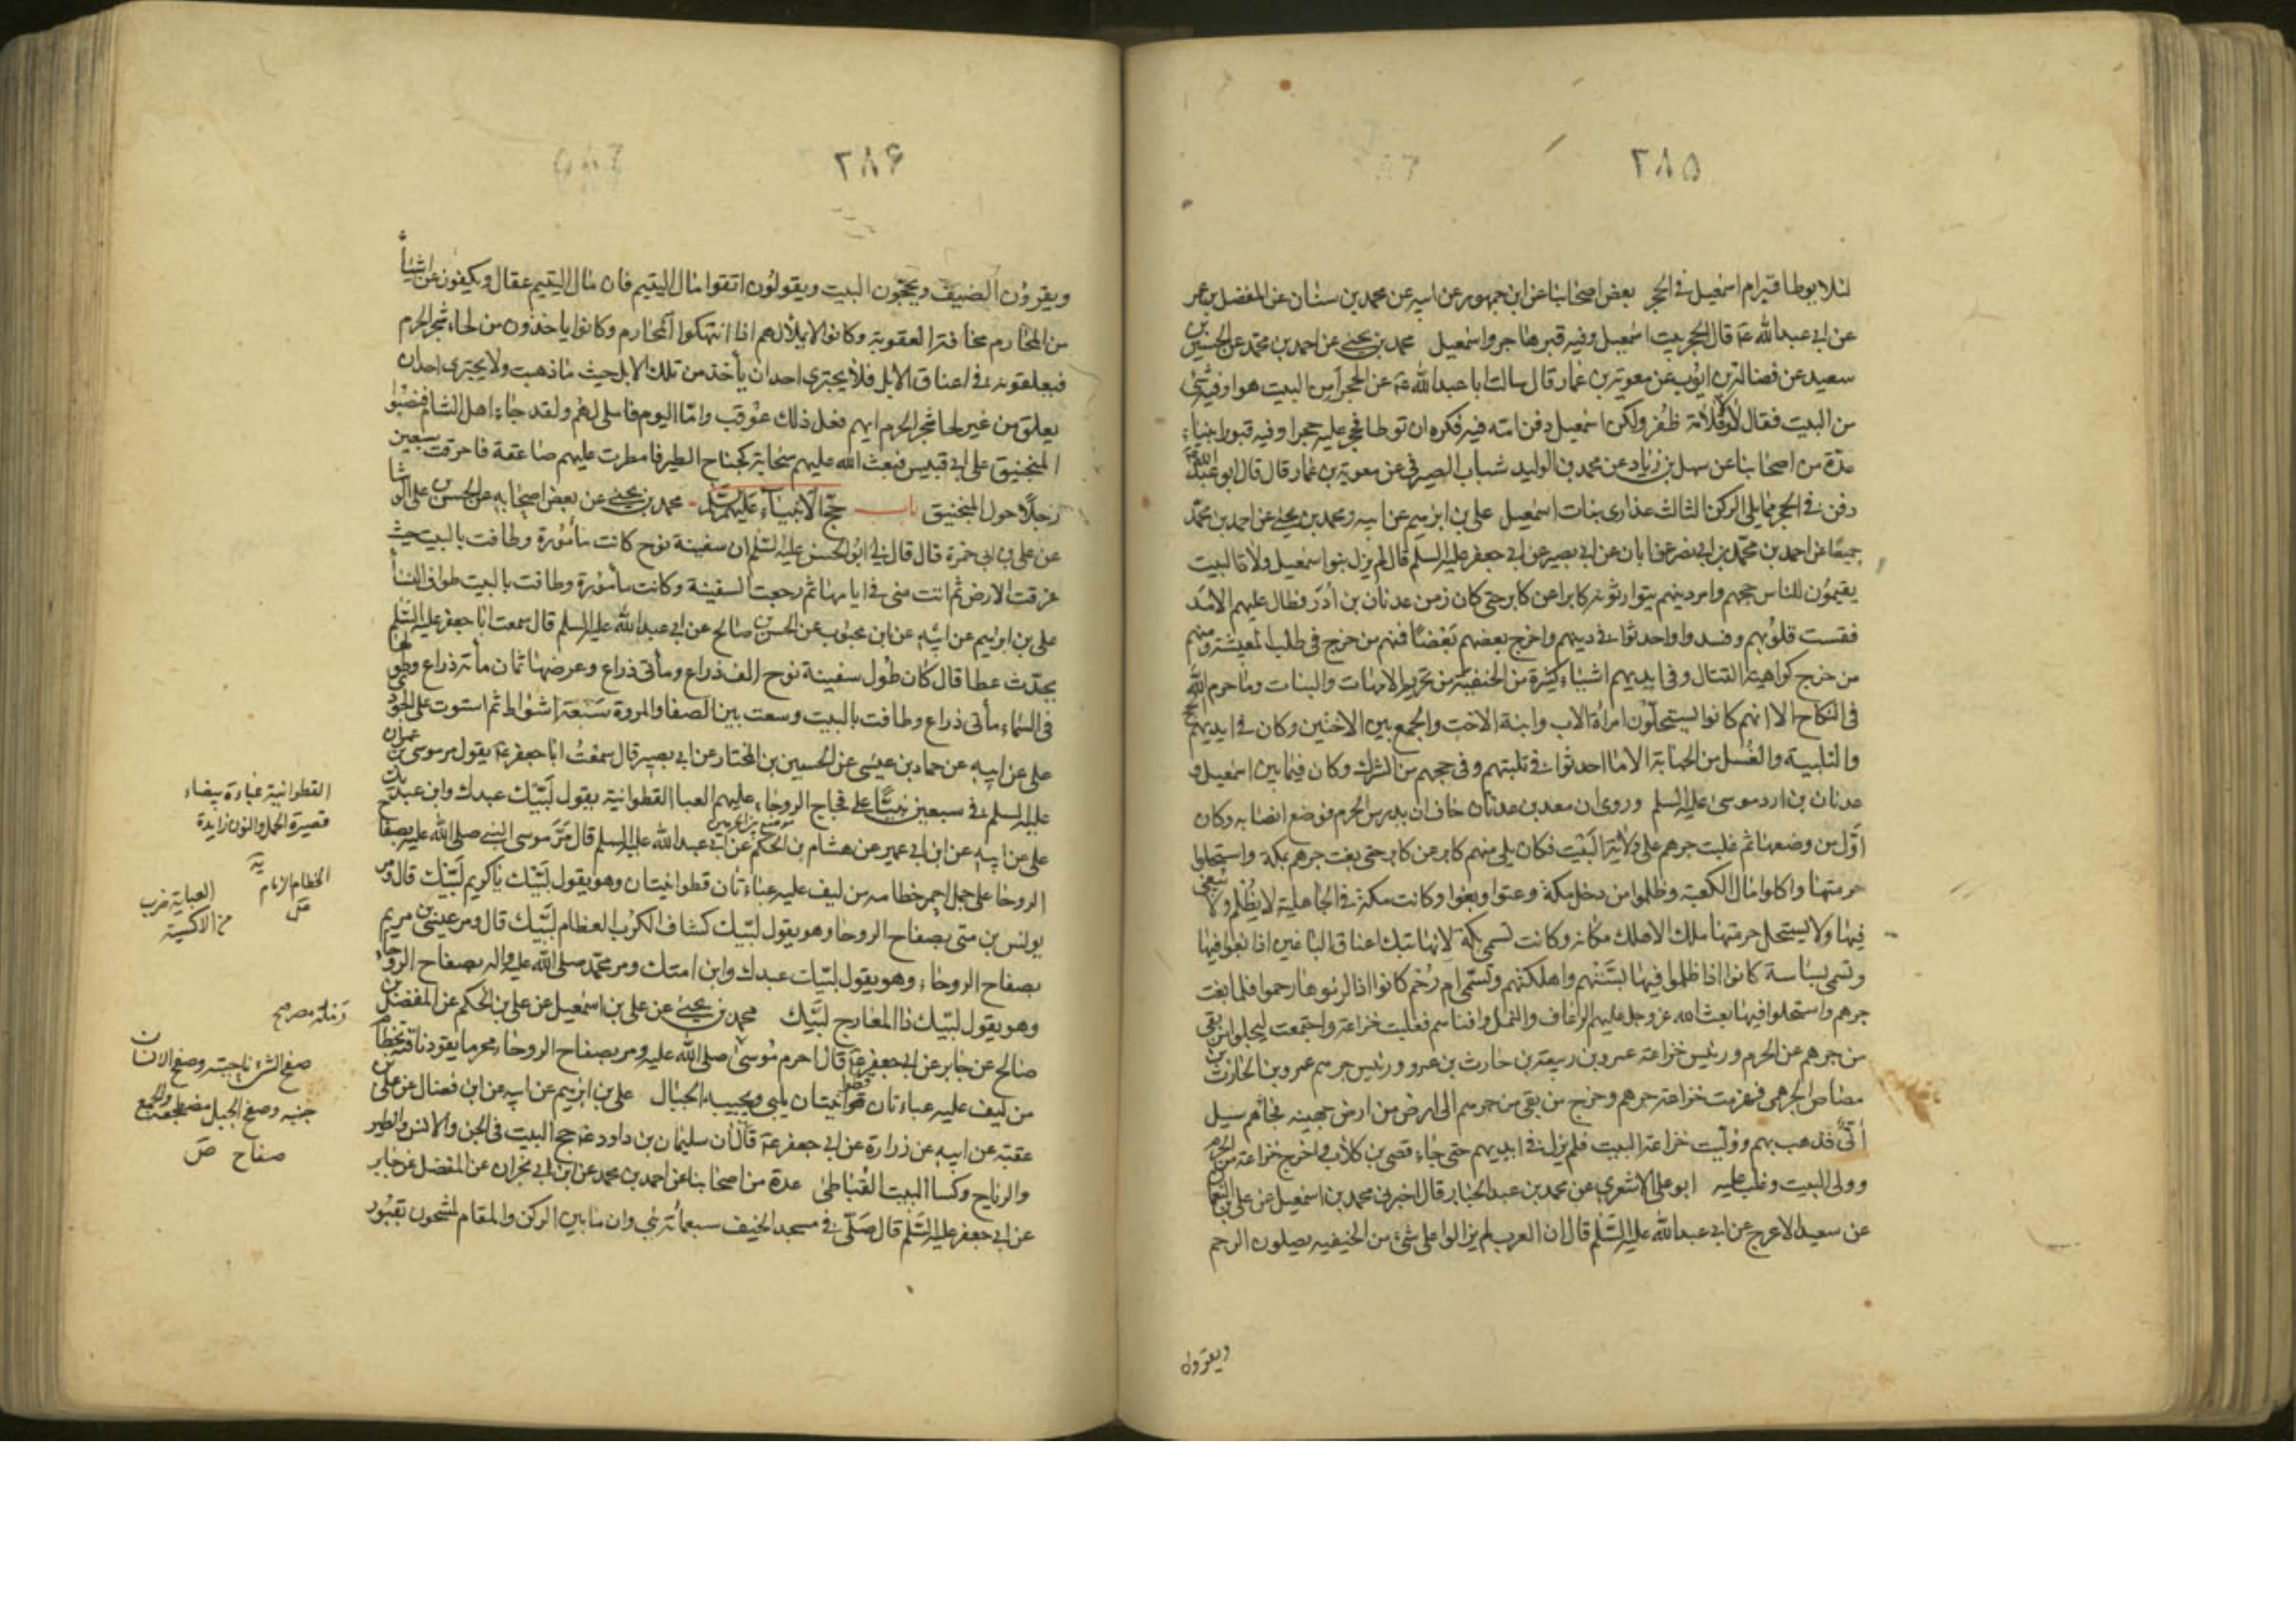 ٢٨٥
لئلا يوطا قبر ام اسمعيل في الحجر بعض اصحابنا عن ابن جمهور عن ابيه عن محمد بن سنان عن المفضل بن عمر
عن ابي عبدالله عۃ قال الحجر بيت اسمعيل وفيه قبر هاجر واسمعيل محمد بن يحيى عن احمد بن محمد عن الحسين بن
سعيد عن فضالة بن ايوب عن معوية بن عمار قال سالت ابا عبدالله عۃ عن الحجر أمن البيت هو او فيه شئ
من البيت فقال لا ولا قلامة ظفر ولكن اسمعيل دفن امه فيه فكره ان توطا فحجر عليه حجرا وفيه قبور انبياء
عدة من اصحابنا عن سهل بن زياد عن محمد بن الوليد شباب الصيرفي عن معوية بن عمار قال قال ابو عبدالله
دفن في الحجر مما يلي الركن الثالث عذارى بنات اسمعيل علي بن ابرهيم عن ابيه ومحمد بن يحيى عن احمد بن محمد
جميعا عن احمد بن محمد بن ابي نصر عن ابان عن ابي بصير عن ابي جعفر عليه السلم قال لم يزل بنو اسمعيل ولاة البيت
يقيمون للناس حجهم وامر دينهم يتوارثونه كابرا عن كابر حتى كان زمن عدنان بن أدد فطال عليهم الامد
فقست قلوبهم وفسدوا واحدثوا في دينهم واخرج بعضهم بعضا فمنهم من خرج في طلب المعيشة ومنهم
من خرج كراهية القتال وفي ايديهم اشياء كثيرة من الحنفية من تحريم الامهات والبنات وما حرم الله
في النكاح الا انهم كانوا يستحلون امراة الاب وابنة الاخت والجمع بين الاختين وكان في ايديهم الحج
والتلبية والغسل من الجنابة الا ما احدثوا في تلبيتهم وفي حجهم من الشرك وكان فيما بين اسمعيل و
عدنان بن ادد موسى عليه السلم وروى ان معد بن عدنان خاف ان يدرس الحرم فوضع انصابه وكان
اول من وضعها ثم غلبت جرهم على ولاية البيت فكان يلي منهم كابر عن كابر حتى بغت جرهم بمكة واستحلوا
حرمتها واكلوا مال الكعبة وظلموا من دخل مكة وعتوا وبغوا وكانت مكة في الجاهلية لا يظلم ولا يبغي
فيها ولا يستحل حرمتها ملك الا هلك مكانه وكانت تسمى بكة لانها تبك اعناق الباغين اذا بغوا فيها
وتسمى بساسة كانوا اذا ظلموا فيها بستهم واهلكتهم وتسمى ام رحم كانوا اذا لزموها رحموا فلما بغت
جرهم واستحلوا فيها بعث الله عز وجل عليهم الرعاف والنمل وافناهم فغلبت خزاعة واجتمعت ليجلوا من بقي
من جرهم عن الحرم ورئيس خزاعة عمرو بن ربيعة بن حارث بن عمرو ورئيس جرهم عمرو بن الحارث بن
مضاض الجرهمي فهزمت خزاعة جرهم وخرج من بقي من جرهم الى ارض من ارض جهينه فجاءهم سيل
أتي فذهب بهم ووليت خزاعة البيت فلم يزل في ايديهم حتى جاء قصي بن كلاب فاخرج خزاعة من الحرم
وولى البيت وغلب عليه ابو علي الاشعري عن محمد بن عبد الجبار قال اخبرني محمد بن اسمعيل عن علي بن النعمان
عن سعيد الاعرج عن ابي عبدالله عليه السلم قال ان العرب لم يزالوا على شئ من الحنيفيه يصلون الرحم
ويقرون
٢٨۶
ويقرون الضيف ويحجون البيت ويقولون اتقوا مال اليتيم فان مال اليتيم عقال ويكفون عن اشياء
من المحارم مخافة العقوبة وكانوا لا يملالهم اذا انتهكوا المحارم وكانوا ياخذون من لحاء شجر الحرم
فيعلقونه في اعناق الابل فلا يجترى احد ان يأخذ من تلك الابل حيث ما ذهبت ولا يجترى احد ان
يعلق من غير لحا شجر الحرم ايهم فعل ذلك عوقب واما اليوم فاملى لهم ولقد جاء اهل الشام فنصبوا
المنجنيق على ابي قبيس فبعث الله عليهم سحابة كجناح الطير فامطرت عليهم صاعقة فاحرقت سبعين
رجلا حول المنجنيق باب حج الانبياء عليهم السلم محمد بن يحيى عن بعض اصحابه عن الحسن بن علي الوشا
عن علي بن ابي حمزة قال قال لي ابو الحسن عليه السلم ان سفينة نوح كانت مأمورة وطافت بالبيت حيث
غرقت الارض ثم اتت منى في ايامها ثم رجعت السفينة وكانت مأمورة وطافت بالبيت طواف النسأ
علي بن ابرهيم عن ابيه عن ابن محبوب عن الحسن بن صالح عن ابي عبدالله عليه السلم قال سمعت ابا جعفر عليه السلم
يحدث عطا قال كان طول سفينة نوح الف ذراع ومأتى ذراع وعرضها ثمان مأة ذراع وطولها
في السماء مأتى ذراع وطافت بالبيت وسعت بين الصفا والمروة سبعة اشواط ثم استوت على الجودي
علي عن ابيه عن حماد بن عيسى عن الحسين بن المختار عن ابي بصير قال سمعت ابا جعفر عۃ يقول مر موسى بن عمران
عليه السلم في سبعين نبيا على فجاج الروحاء عليهم العبا القطوانية يقول لبيك عبدك وابن عبديك
علي عن ابيه عن ابن ابي عمير عن هشام بن الحكم عن ابي عبدالله عليه السلم قال مر موسى النبي صلى الله عليه بصفاح
الروحا على جمل احمر خطامه من ليف عليه عباءتان قطوانيتان وهو يقول لبيك ياكريم لبيك قال ومر
يونس بن متى بصفاح الروحا وهو يقول لبيك كشاف الكرب العظام لبيك قال ومر عيسى بن مريم
بصفاح الروحاء وهو يقول لبيك عبدك وابن امتك ومر محمد صلى الله عليه واله بصفاح الروحا
وهو يقول لبيك ذا المعارج لبيك محمد بن يحيى عن علي بن اسمعيل عن علي بن الحكم عن المفضل بن
صالح عن جابر عن ابي جعفر عۃ قال احرم موسى صلى الله عليه ومر بصفاح الروحاء محرما يقود ناقته بخطام
من ليف عليه عباءتان قطوانيتان يلبي ويجيبه الجبال علي بن ابرهيم عن ابيه عن ابن فضال عن علي بن
عقبة عن ابيه عن زرارة عن ابي جعفر عۃ قال ان سليمان بن داود عۃ حج البيت في الجن والانس والطير
والرياح وكسا البيت القباطي عدة من اصحابنا عن احمد بن محمد عن ابن ابي نجران عن المفضل عن جابر
عن ابي جعفر عليه السلم قال صلى في مسجد الخيف سبعمأة نبي وان ما بين الركن والمقام لمشحون بقبور
القطوانية عباءة بيضاء
قصيرة الخمل والنون زايدة
الخطام الزمام
العباية ضرب
من الاكسية
صفح الشئ ناحيته وصفح الانسان
جنبه وصفح الجبل مضطجعه والجمع
صفاح ص